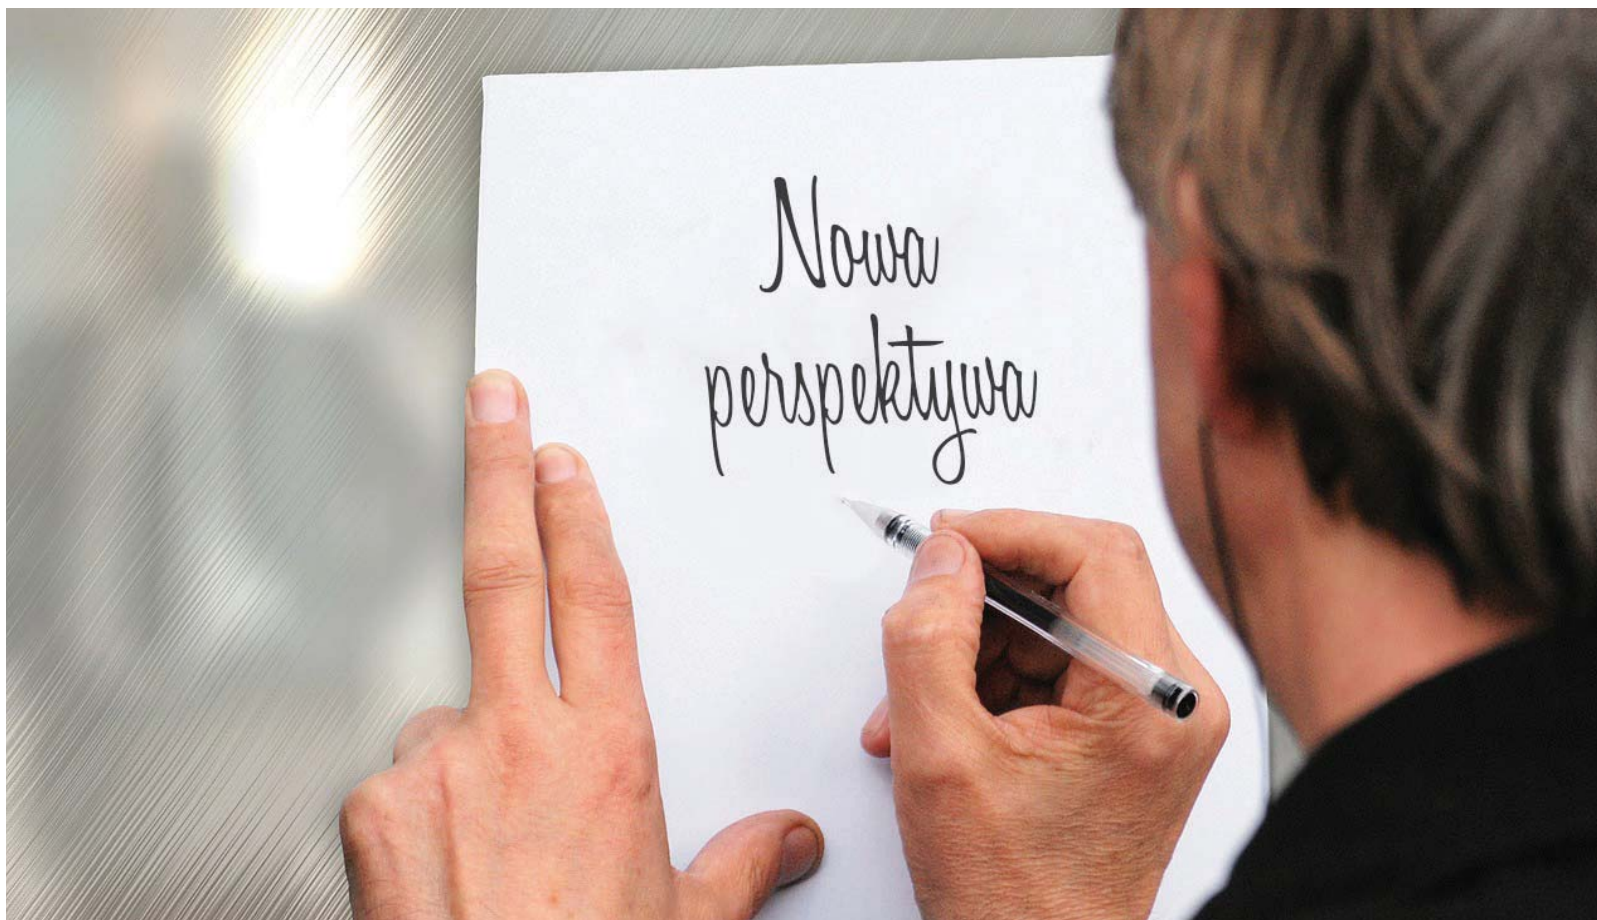 Nowa
perspektywa